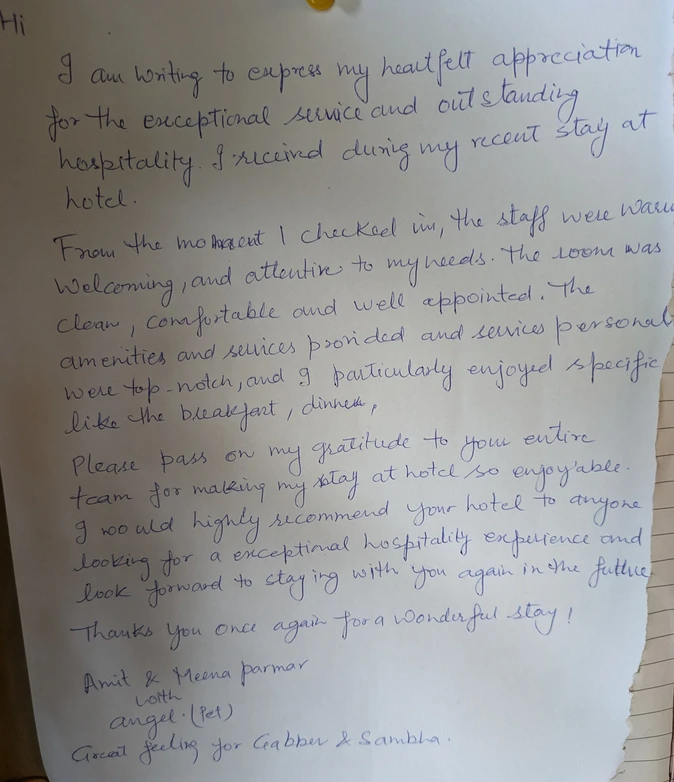 Hi
I am writing to express my heartfelt appreciation
for the exceptional service and outstanding
hospitality. I received during my recent stay at
hotel.
From the moment I checked in, the staff were warm
welcoming, and attentive to my needs. The room was
clean, comfortable and well appointed. The
amenities and services provided and services personal
were top-notch, and I particularly enjoyed specific
like the breakfast, dinner,
Please pass on my gratitude to your entire
team for making my stay at hotel so enjoyable.
I would highly recommend your hotel to anyone
looking for a exceptional hospitality experience and
look forward to staying with you again in the future.
Thanks you once again for a wonderful stay!
Amit & Meena parmar
with
angel. (Pet)
Great feeling for Gabber & Sambha.